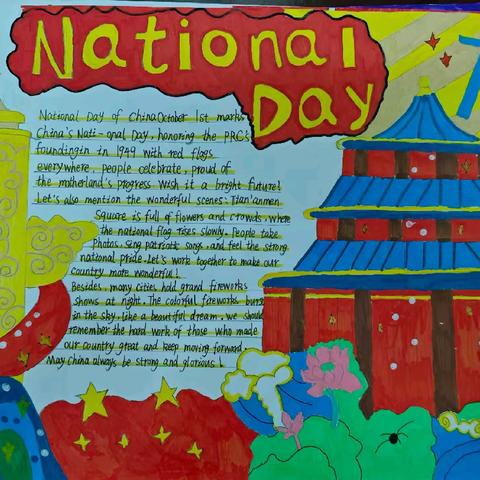 National
Day
National Day of China October 1st marks
China's Nati-onal Day, honoring the PRC's
foundingin in 1949 with red flags
everywhere, people celebrate, proud of
the motherland's progress wish it a bright future!
Let's also mention the wonderful scenes: Tian'anmen
Square is full of flowers and crowds, where
the national flag rises slowly. People take
photos, sing patriotic songs, and feel the strong
national pride. Let's work together to make our
country more wonderful!
Besides, many cities hold grand fireworks
shows at night. The colorful fireworks burst
in the sky, like a beautiful dream, we should
remember the hard work of those who made
our country great and keep moving forward.
May China always be strong and glorious!